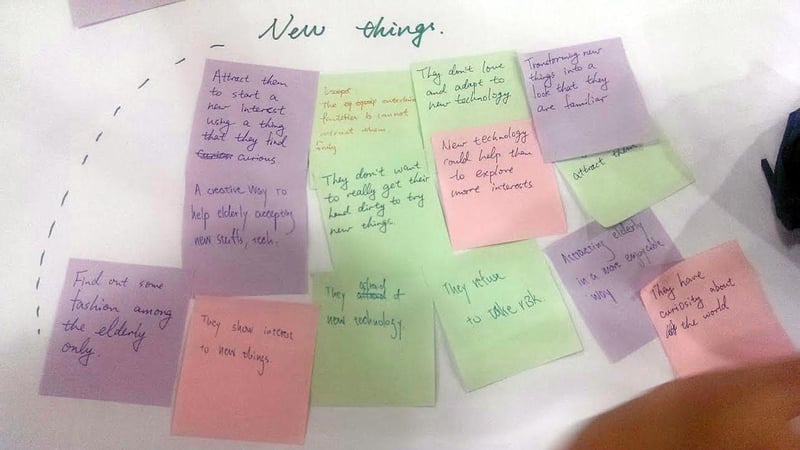 New things.
Attract them
to start a
new interest
using a thing
that they find
curious
The entertain
facilities cannot
attract them.
They don't love
and adapt to
new technology
Transforming new
things into a
look that they
are familiar
A creative way to
help elderly accepting
new stuffs, tech.
They don't want
to really get their
hand dirty to try
new things.
New technology
could help them
to explore
more interests
attract them
Find out some
fashion among
the elderly
only.
They show interest
to new things.
They afraid of
new technology
They refuse
to take risk.
Attracting elderly
in a more enjoyable
way
They have
curiosity about
the world